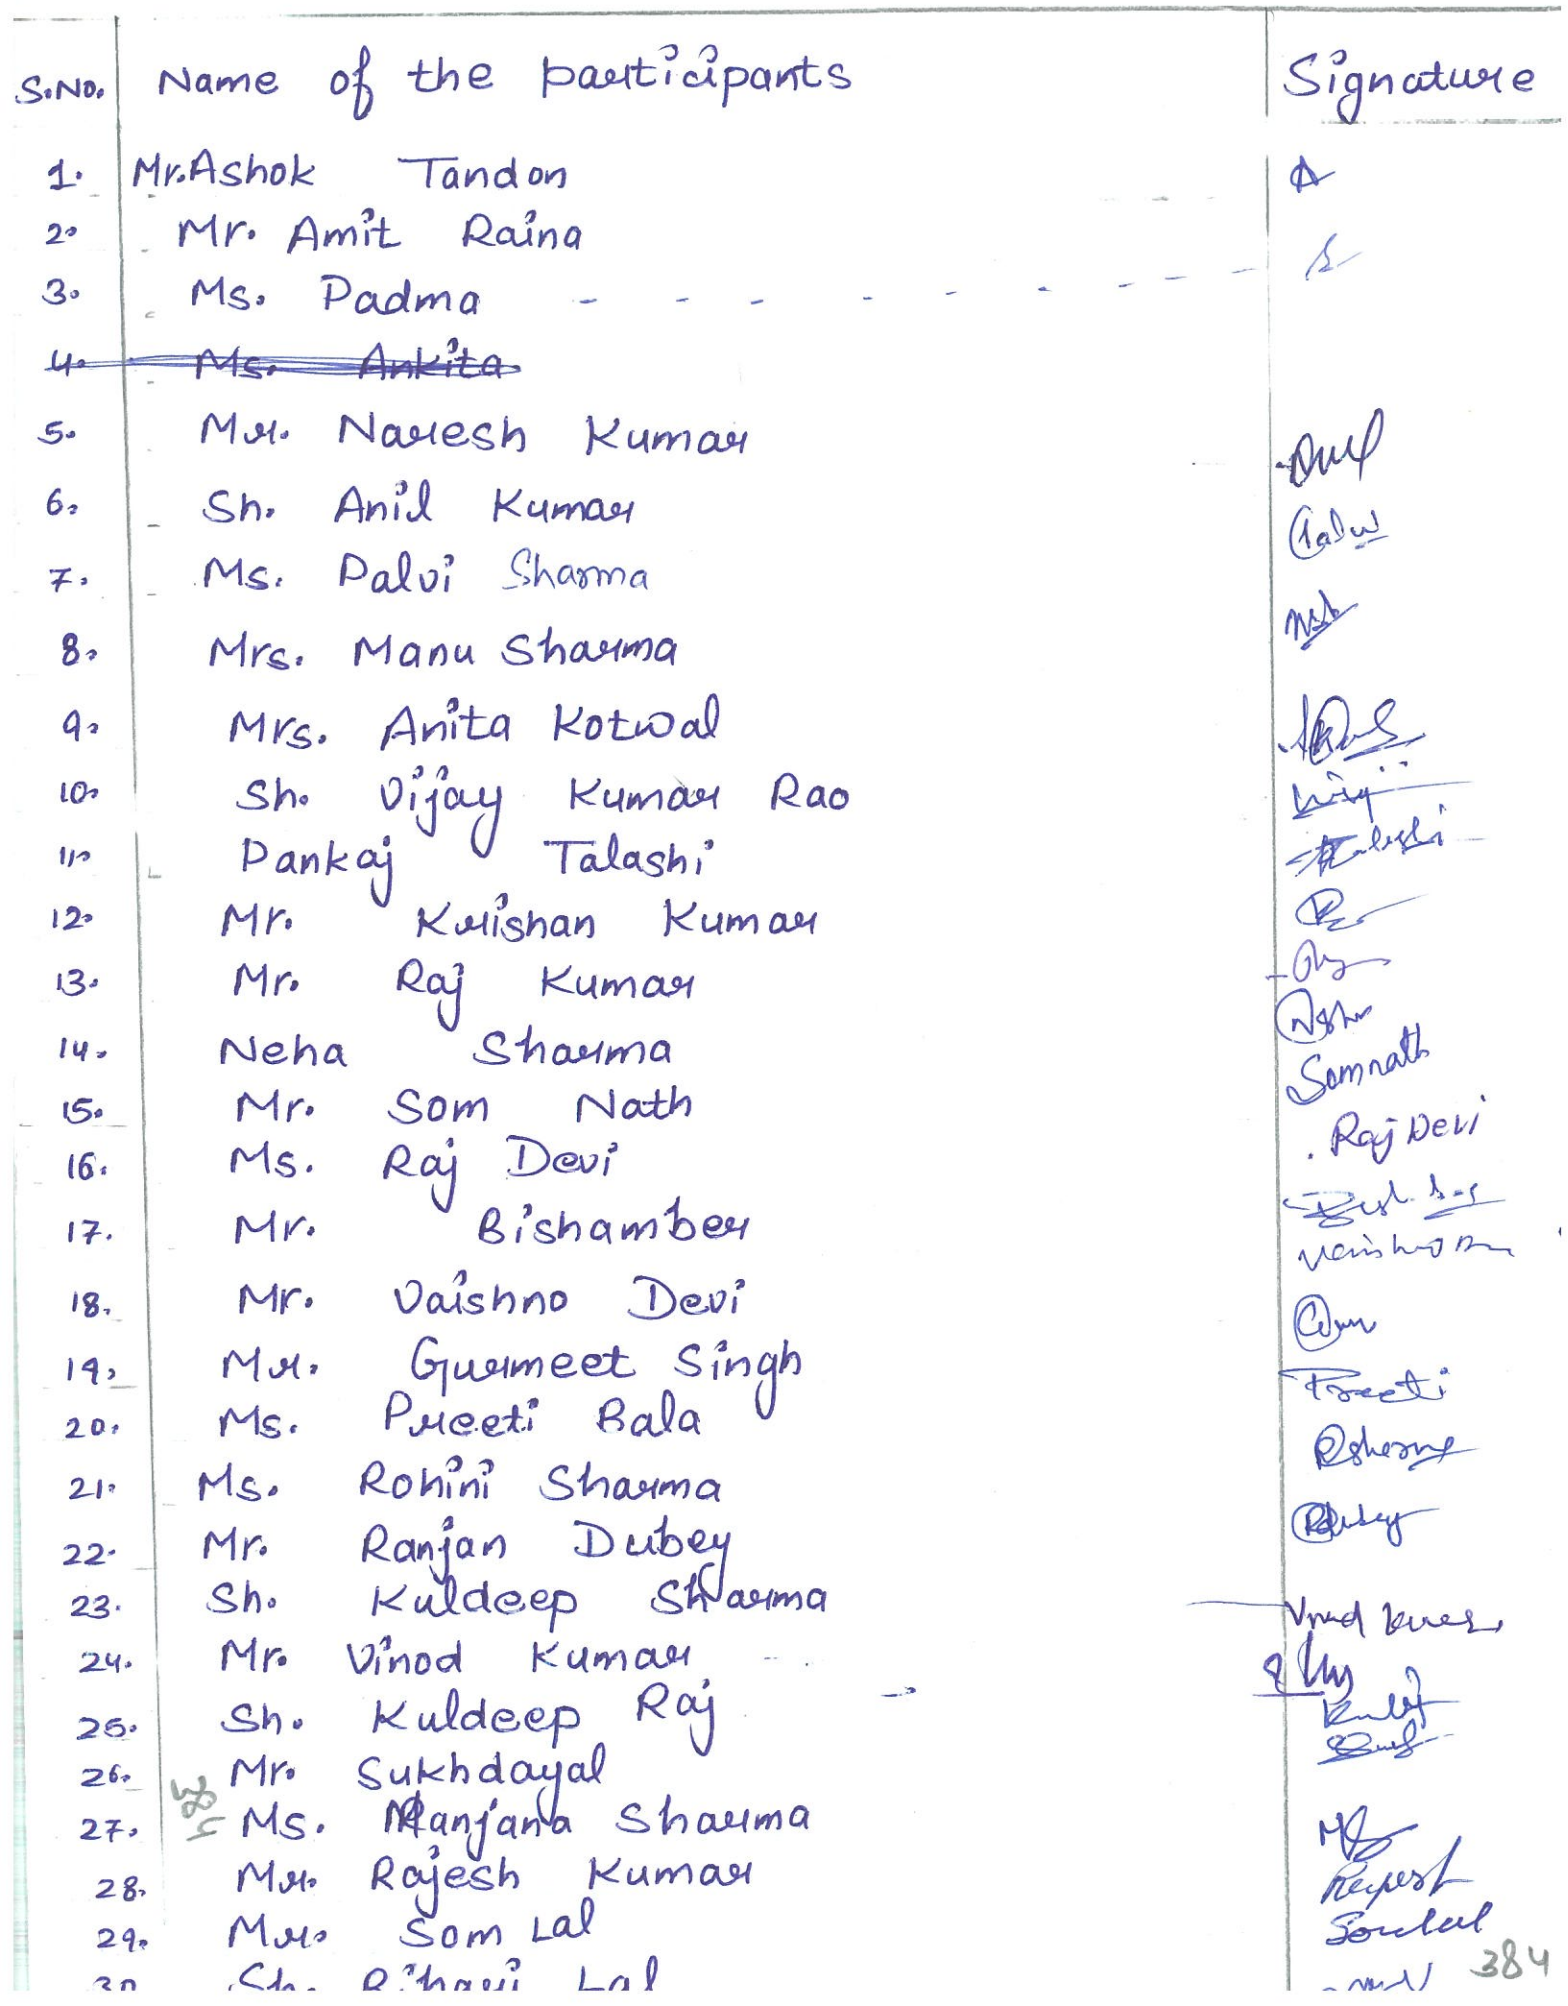 S.No. Name of the participants Signature
1. Mr. Ashok Tandon
2. Mr. Amit Raina
3. Ms. Padma
4. Ms. Ankita
5. Mr. Naresh Kumar
6. Sh. Anil Kumar
7. Ms. Palvi Sharma
8. Mrs. Manu Sharma
9. Mrs. Anita Kotwal
10. Sh. Vijay Kumar Rao
11. Pankaj Talashi
12. Mr. Krishan Kumar
13. Mr. Raj Kumar
14. Neha Sharma
15. Mr. Som Nath Somnath
16. Ms. Raj Devi Raj Devi
17. Mr. Bishamber
18. Mr. Vaishno Devi
19. Mr. Gurmeet Singh
20. Ms. Preeti Bala Preeti
21. Ms. Rohini Sharma
22. Mr. Ranjan Dubey
23. Sh. Kuldeep Sharma
24. Mr. Vinod Kumar
25. Sh. Kuldeep Raj
26. Mr. Sukhdayal
27. Ms. Manjana Sharma
28. Mr. Rajesh Kumar
29. Mr. Som Lal
30 Sh. Bihari Lal
384